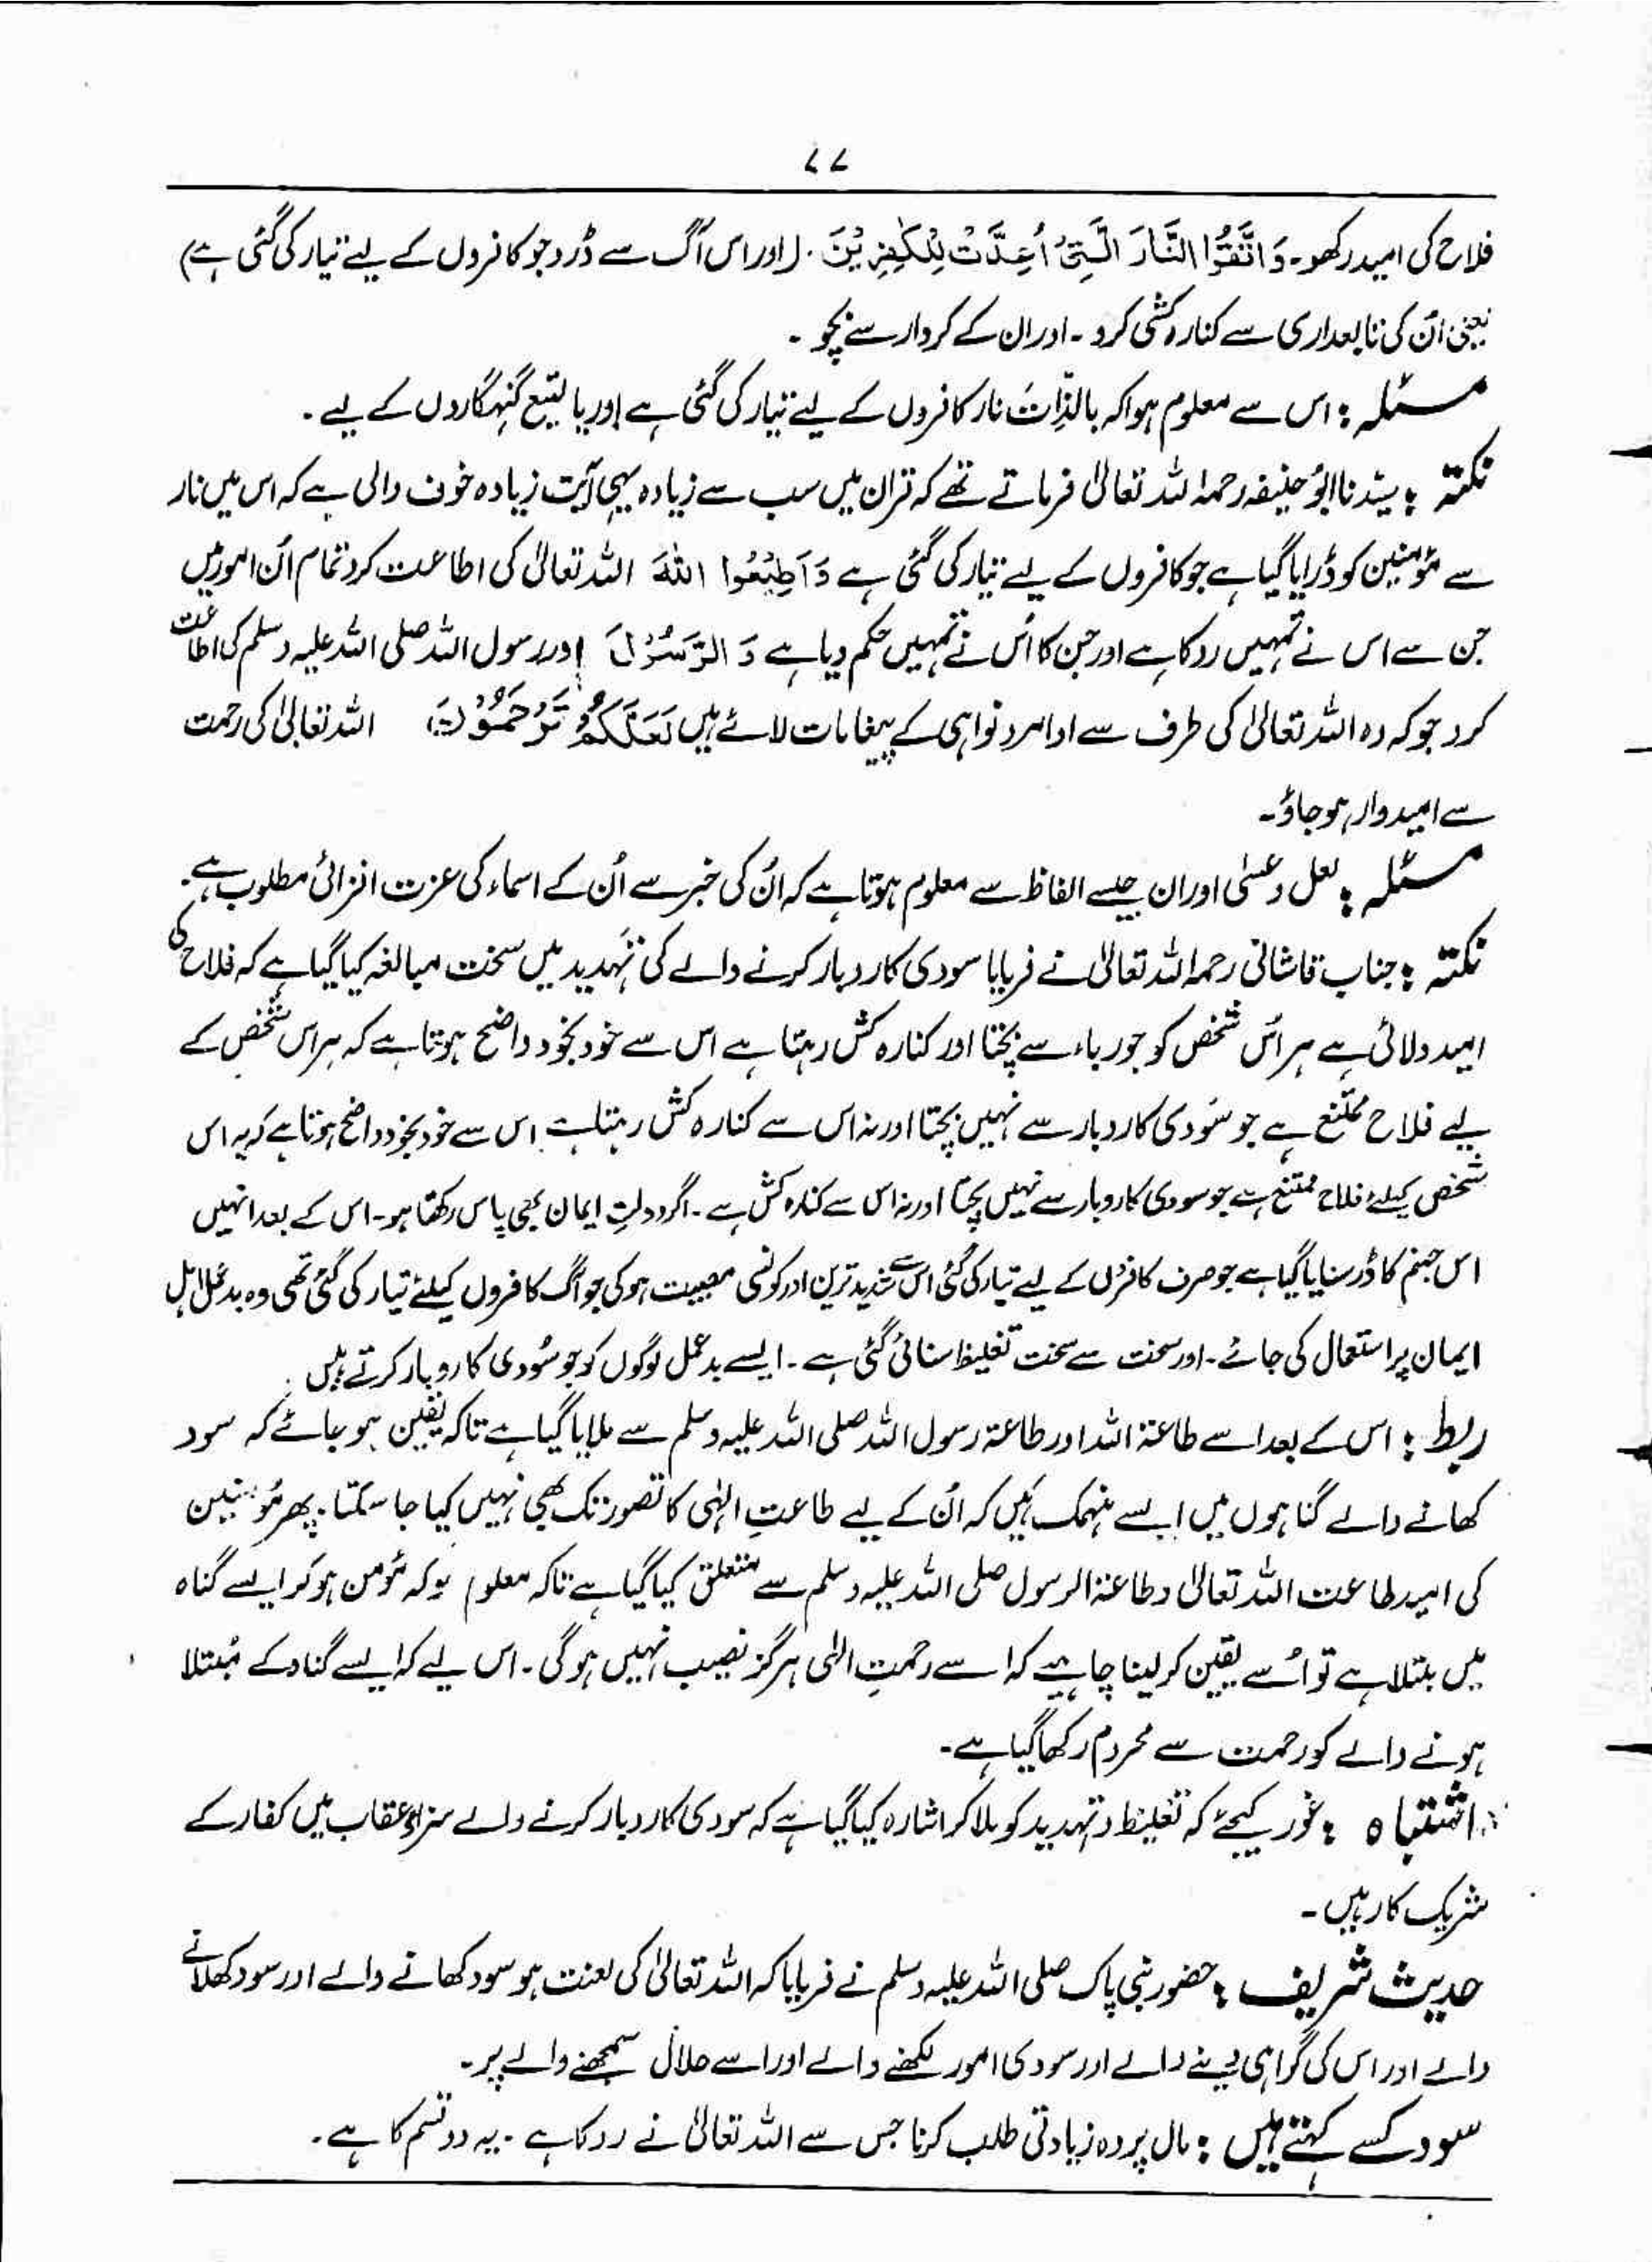 ۷۷
فلاح کی امید رکھو۔ وَاتَّقُوا النَّارَ الَّتِیْٓ اُعِدَّتْ لِلْکٰفِرِیْنَ ۔ (اور اس آگ سے ڈرو جو کافروں کے لیے تیار کی گئی ہے)
یعنی اُن کی تابعداری سے کنارہ کشی کرو ۔ اور ان کے کردار سے بچو ۔
مسئلہ : اس سے معلوم ہوا کہ بالذّات نار کافروں کے لیے تیار کی گئی ہے اور بالتبع گنہگاروں کے لیے ۔
نکتہ : سیّدنا ابوُ حنیفہ رحمہ اللہ تعالیٰ فرماتے تھے کہ قرآن میں سب سے زیادہ یہی آیت زیادہ خوف والی ہے کہ اس میں نار
سے مؤمنین کو ڈرایا گیا ہے جو کافروں کے لیے تیار کی گئی ہے وَاَطِیْعُوا اللّٰہَ اللہ تعالیٰ کی اطاعت کرو تمام اُن امور میں
جن سے اس نے تمہیں روکا ہے اور جن کا اُس نے تمہیں حکم دیا ہے وَ الرَّسُوْلَ اور رسول اللہ صلی اللہ علیہ وسلم کی اطاعت
کرو جو کہ وہ اللہ تعالیٰ کی طرف سے اوامر و نواہی کے پیغامات لائے ہیں لَعَلَّکُمْ تُرْحَمُوْنَ اللہ تعالیٰ کی رحمت
سے امیدوار ہو جاؤ۔
مسئلہ : لعل و عسیٰ اور ان جیسے الفاظ سے معلوم ہوتا ہے کہ اُن کی خبر سے اُن کے اسماء کی عزت افزائی مطلوب ہے۔
نکتہ : جناب قاشانی رحمہ اللہ تعالیٰ نے فرمایا سودی کاروبار کرنے والے کی تہدید میں سخت مبالغہ کیا گیا ہے کہ فلاح کی
امید دلائی ہے ہر اُس شخص کو جو رباء سے بچتا اور کنارہ کش رہتا ہے اس سے خود بخود واضح ہوتا ہے کہ ہر اس شخص کے
لیے فلاح ممتنع ہے جو سُودی کاروبار سے نہیں بچتا اور نہ اس سے کنارہ کش رہتا ہے اس سے خود بخود واضح ہوتا ہے کہ یہ اس
شخص کیلئے فلاح ممتنع ہے جو سودی کاروبار سے نہیں بچتا اور نہ اس سے کنارہ کش ہے ۔ اگر دولتِ ایمان بھی پاس رکھتا ہو۔ اس کے بعد انہیں
اس جہنم کا ڈر سنایا گیا ہے جو صرف کافروں کے لیے تیار کی گئی اس سے شدید ترین اور کونسی مصیبت ہوگی جو آگ کافروں کیلئے تیار کی گئی تھی وہ بد عمل اہل
ایمان پر استعمال کی جائے ۔ اور سخت سے سخت تغلیظ سنائی گئی ہے ۔ ایسے بد عمل لوگوں کو جو سُودی کاروبار کرتے ہیں ۔
ربط : اس کے بعد اسے طاعۃ اللہ اور طاعۃ رسول اللہ صلی اللہ علیہ وسلم سے ملایا گیا ہے تاکہ یقین ہو جائے کہ سود
کھانے والے گناہوں میں ایسے منہمک ہیں کہ اُن کے لیے طاعتِ الٰہی کا تصور تک بھی نہیں کیا جا سکتا ۔ پھر مؤمنین
کی امید طاعت اللہ تعالیٰ و طاعۃ الرسول صلی اللہ علیہ وسلم سے متعلق کیا گیا ہے تاکہ معلوم ہو کہ مؤمن ہو کر ایسے گناہ
میں مبتلا ہے تو اُسے یقین کر لینا چاہیے کہ اسے رحمتِ الٰہی ہرگز نصیب نہیں ہوگی ۔ اس لیے کہ ایسے گناہ کے مُبتلا
ہونے والے کو رحمت سے محروم رکھا گیا ہے۔
اشتباہ : غور کیجئے کہ تغلیظ و تہدید کو ملا کر اشارہ کیا گیا ہے کہ سودی کاروبار کرنے والے سزا و عقاب میں کفار کے
شریک کار ہیں ۔
حدیث شریف : حضور نبی پاک صلی اللہ علیہ وسلم نے فرمایا کہ اللہ تعالیٰ کی لعنت ہو سود کھانے والے اور سود کھلانے
والے اور اس کی گواہی دینے والے اور سودی امور لکھنے والے اور اسے حلال سمجھنے والے پر ۔
سود کسے کہتے ہیں : مال پر وہ زیادتی طلب کرنا جس سے اللہ تعالیٰ نے روکا ہے ۔ یہ دو قسم کا ہے ۔